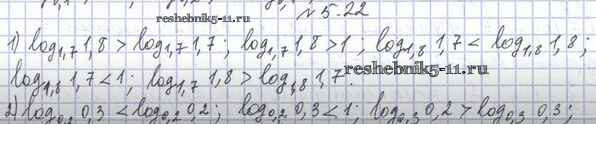 reshebnik5-11.ru
№ 5.22
1) log₁,₇ 1,8 > log₁,₇ 1,7; log₁,₇ 1,8 > 1; log₁,₈ 1,7 < log₁,₈ 1,8;
log₁,₈ 1,7 < 1; log₁,₇ 1,8 > log₁,₈ 1,7.
reshebnik5-11.ru
2) log₀,₂ 0,3 < log₀,₂ 0,2; log₀,₂ 0,3 < 1; log₀,₃ 0,2 > log₀,₃ 0,3;